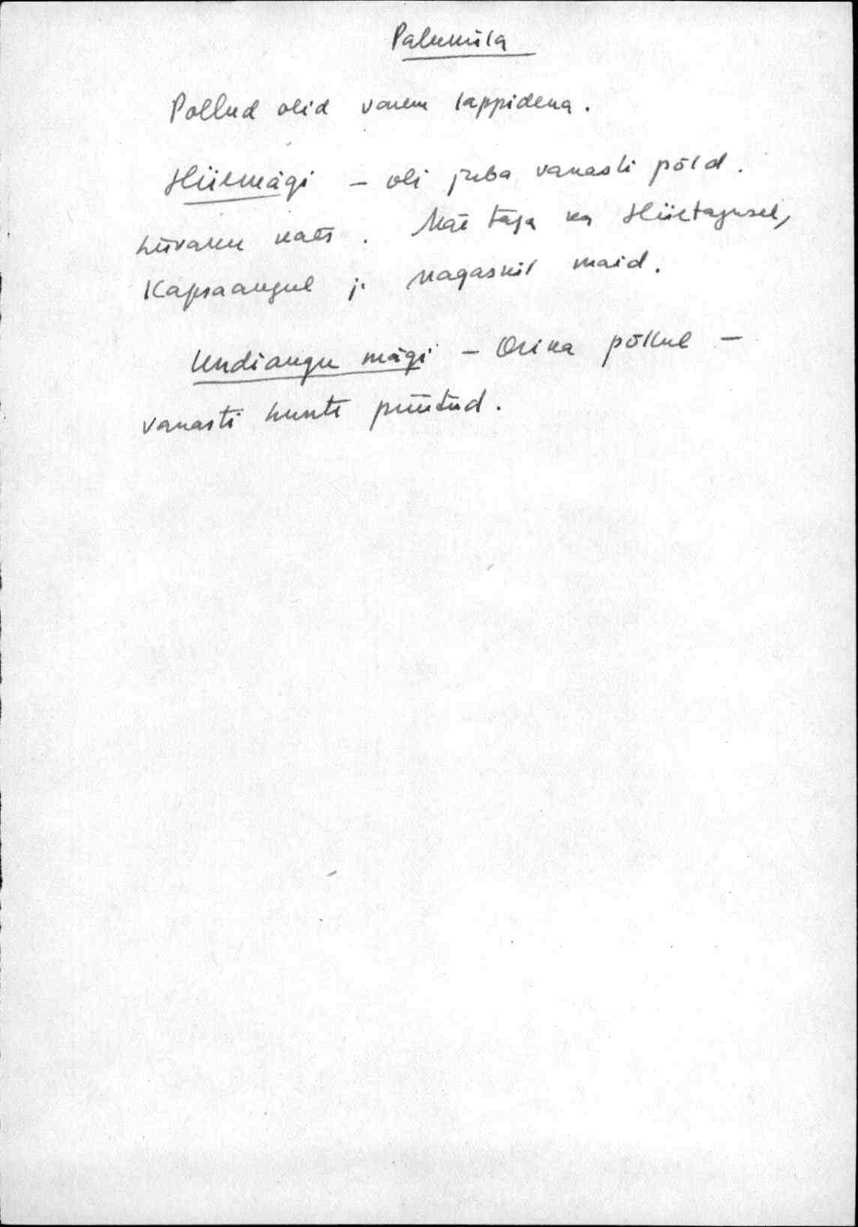 Paluküla
Põllud olid varem lappidena.
Hiiemägi – oli juba vanasti põld.
Mäe taga ka Hiietagusel,
Kapsaaugul ja maid.
Undiaugu mägi – põllul –
vanasti hunte püütud.